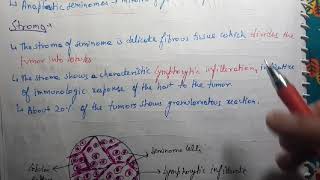 ↳ Anaplastic seminomas →
Stroma →
↳ The stroma of seminoma is delicate fibrous tissue which divides the
tumor into lobules
↳ The stroma shows a characteristic lymphocytic infiltration,
of immunologic response of the host to the tumor.
↳ About 20% of the tumors shows granulomatous reaction.
Seminoma cells
Lymphocytic infiltrate